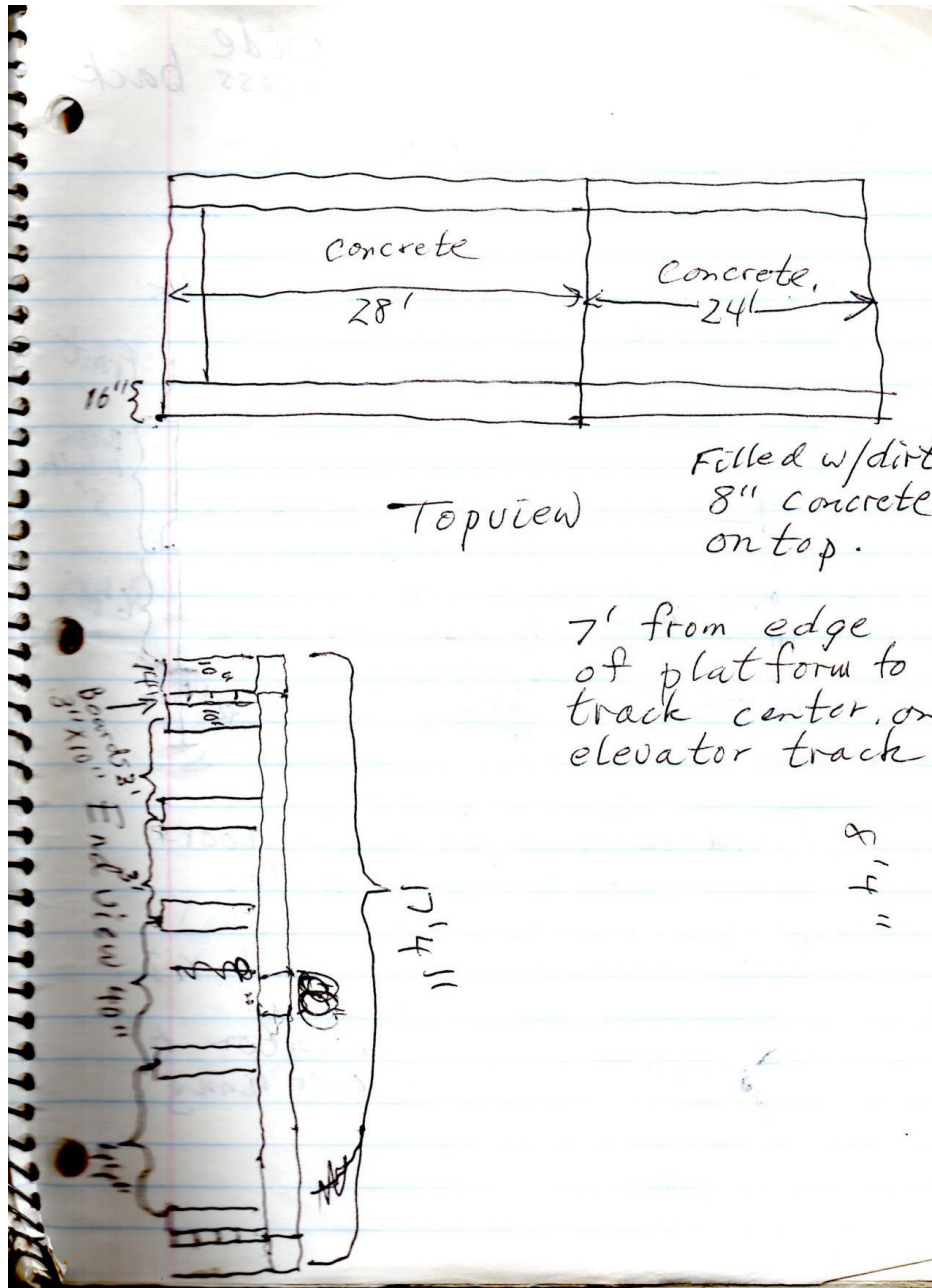 Concrete
28'
Concrete.
24'
16"
Topview
Filled w/dirt
8" concrete
on top.
7' from edge
of platform to
track center, on
elevator track
Boards
3"x10"
3'
3'
End View
40"
44"
17'4"
8'4"